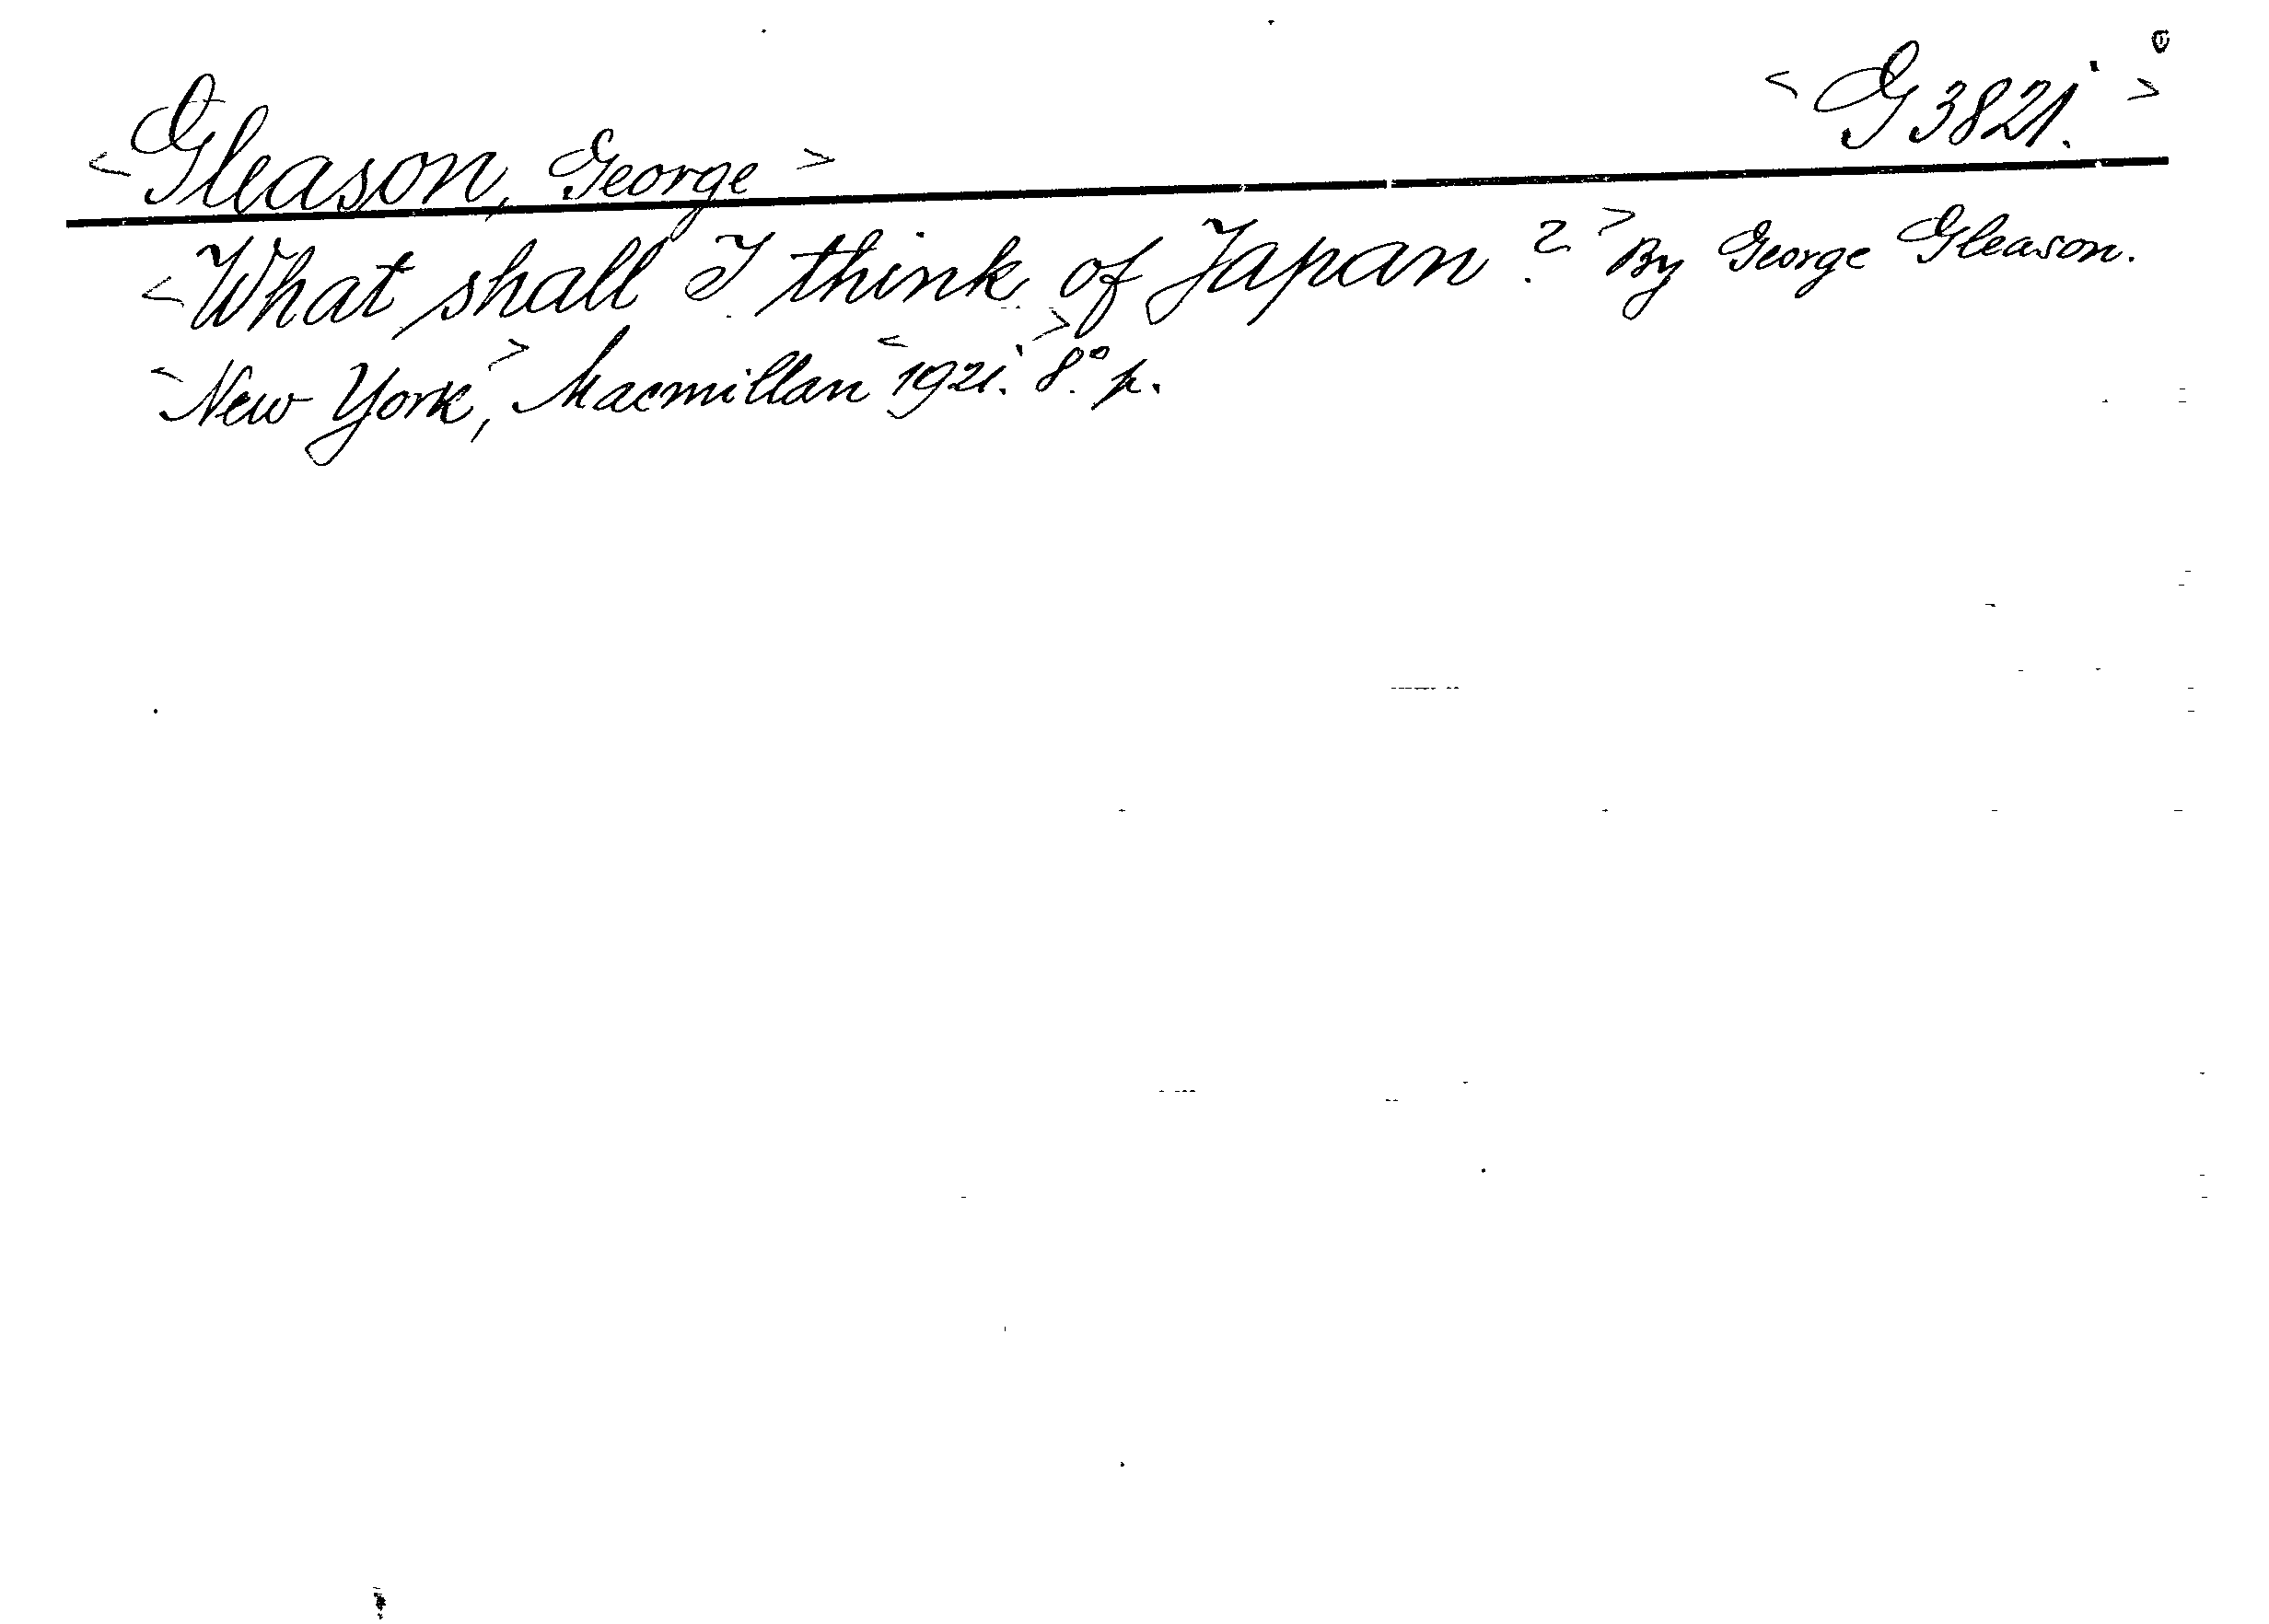 <G 3821.>
<Gleason, George>
<What shall I think of Japan?> By George Gleason.
<New York,> Macmillan <1921.> 8.° p.